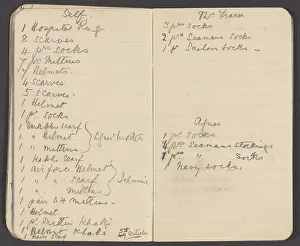 Self.
1 Hospital Rug
3 scarves
4 prs socks
7 prs mittens
7 Helmets
4 Scarves
5 scarves.
1 Helmet
1 pr socks
1 scarf
1 " Helmet
1 " mittens
1 Khaki scarf
1 airforce Helmet
1 " " scarf
1 " mittens
1 pair mittens.
1 Helmet
1 pr mittens Khaki
1 Helmet Khaki
1 navy scarf
Mrs Fraser
3 prs socks
2 prs Seamans Socks
1 pr Socks.
1 pr socks
prs Seamans Stockings
" socks
1 navy socks.